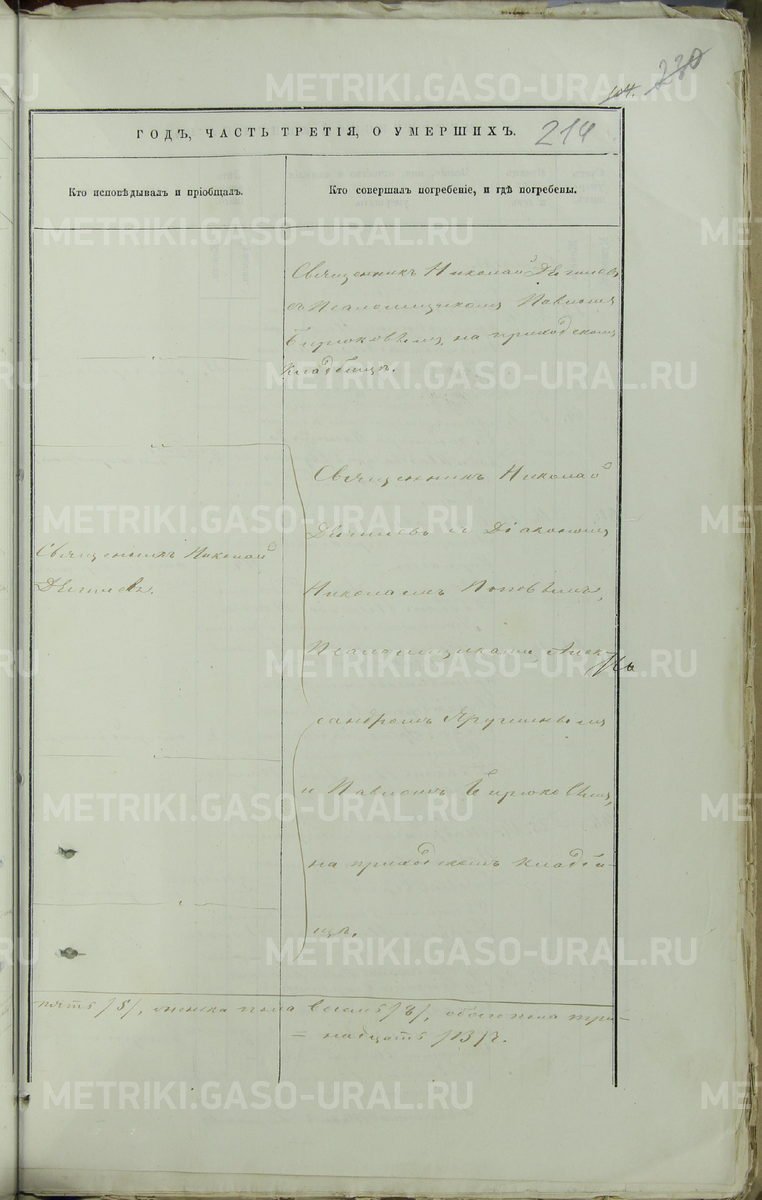 230
104.
ГОДЪ, ЧАСТЬ ТРЕТІЯ, О УМЕРШИХЪ.
214
Кто исповѣдывалъ и пріобщалъ.
Кто совершалъ погребеніе, и гдѣ погребены.
Священникъ Николай
съ Псаломщикомъ Павломъ
Бирюковымъ, на приходскомъ
кладбищѣ.
Священникъ Николай
Священникъ Николай
съ Діакономъ
Николаемъ Поповымъ,
Псаломщиками, Алек-
сандромъ
и Павломъ Бирюковымъ,
на приходскомъ кладби-
щѣ.
пять /5/, женска пола восемь /8/, обоего пола три-
= надцать /13/.
METRIKI.GASO-URAL.RU